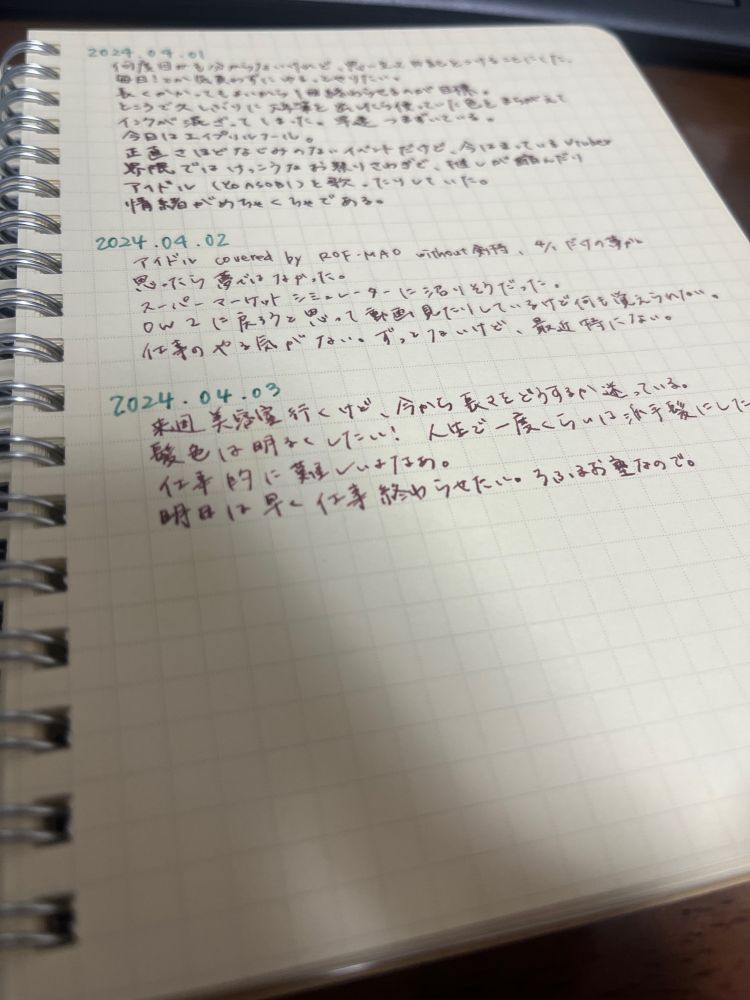 2024.04.01
何度目かも分からないけれど、
毎日1つが気負わずにゆるっとやりたい。
長くかかってもよいから1冊終わらせるのが目標。
ところで久しぶりに万年筆を出したら使っていた色をまちがえて
インクが混ざってしまった。早速つまずいている。
今日はエイプリルフール。
正直さほどなじみのないイベントだけど、今はまっているVtuber
界隈ではけっこうなお祭りさわぎで、推しが組んだり
アイドル(YOASOBI)を歌ったりしていた。
情緒がめちゃくちゃである。
2024.04.02
アイドル covered by ROF-MAO without剣持、4/1だけの夢かと
思ったら夢ではなかった。
スーパーマーケットシミュレーターに沼りそうだった。
OW2に戻ろうと思って動画見たりしているけど何も覚えられない。
仕事のやる気がない。ずっとないけど、最近特にない。
2024.04.03
来週美容室行くけど、今から長さをどうするか迷っている。
髪色は明るくしたい! 人生で一度くらいは派手髪にした
仕事的に難しいよなあ。
明日は早く仕事終わらせたい。ろふまお塾なので。